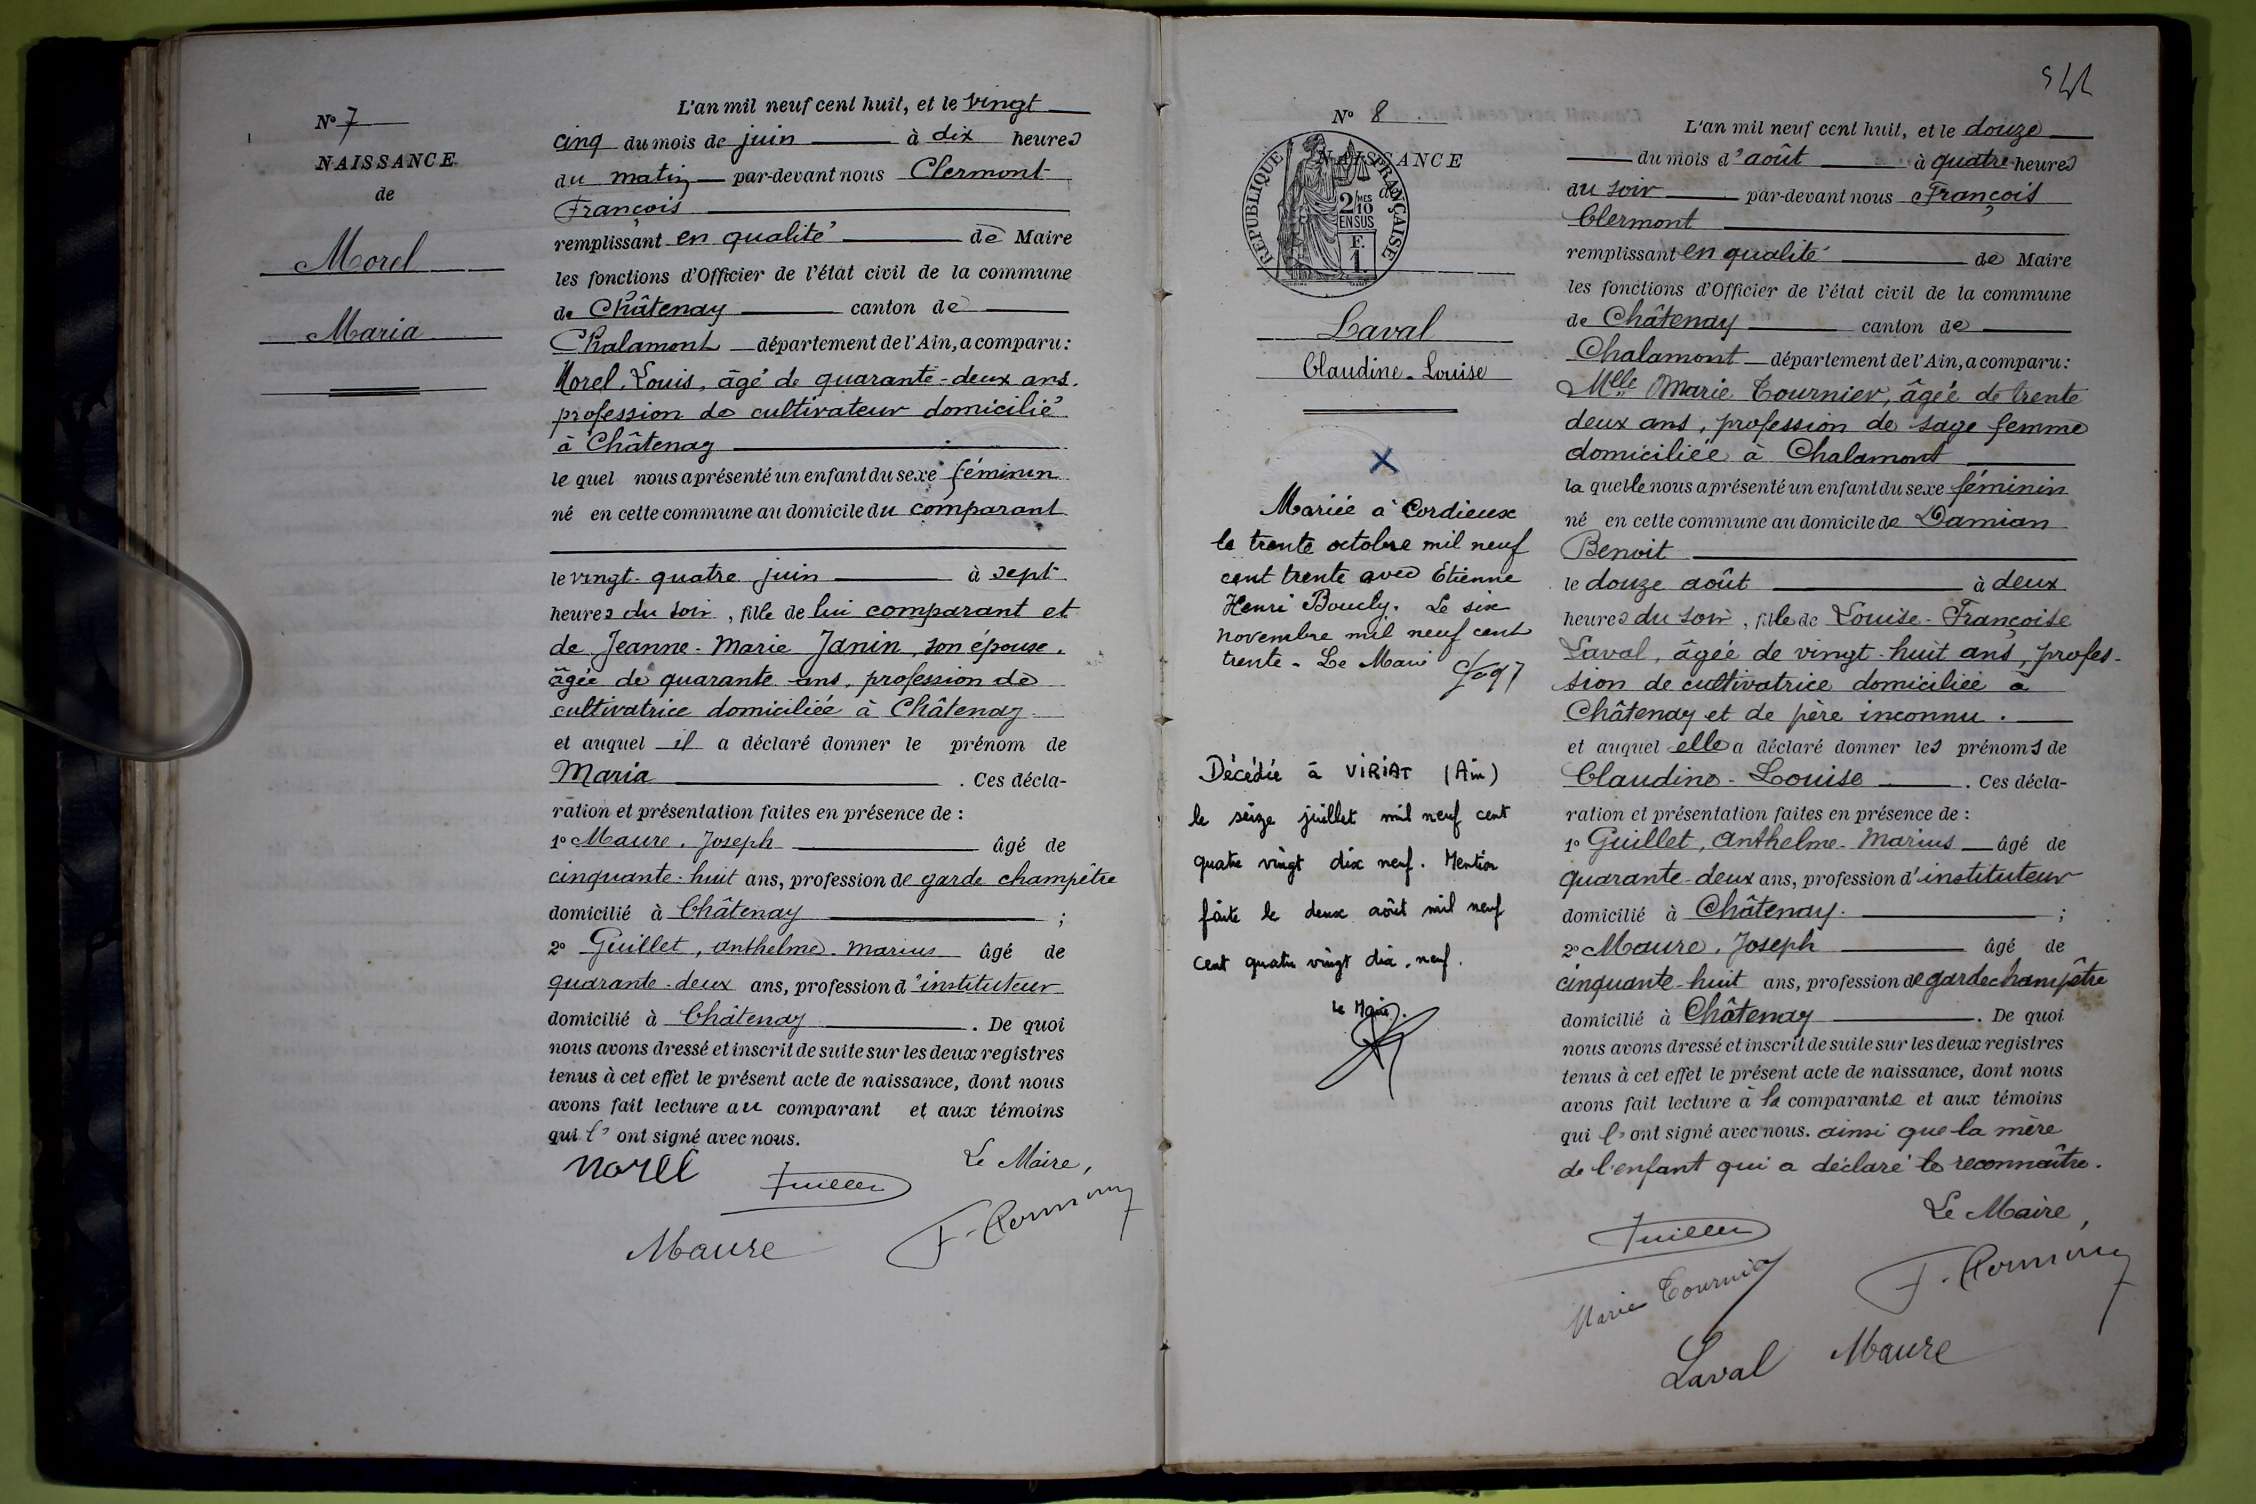 N° 7
NAISSANCE
de
Morel
Maria
L'an mil neuf cent huit, et le vingt
cinq du mois de juin à dix heures
du matin par-devant nous Clermont
François
remplissant en qualité de Maire
les fonctions d'Officier de l'état civil de la commune
de Châtenay canton de
Chalamont département de l'Ain, a comparu :
Morel, Louis, âgé de quarante-deux ans.
profession de cultivateur domicilié
à Châtenay
le quel nous a présenté un enfant du sexe féminin
né en cette commune au domicile du comparant
le vingt-quatre juin à sept
heures du soir, fille de lui comparant et
de Jeanne-Marie Janin, son épouse.
âgée de quarante ans, profession de
cultivatrice domiciliée à Châtenay
et auquel il a déclaré donner le prénom de
Maria . Ces décla-
ration et présentation faites en présence de :
1° Maure, Joseph âgé de
cinquante-huit ans, profession de garde champêtre
domicilié à Châtenay ;
2° Guillet, Anthelme-Marius âgé de
quarante-deux ans, profession d'instituteur
domicilié à Châtenay . De quoi
nous avons dressé et inscrit de suite sur les deux registres
tenus à cet effet le présent acte de naissance, dont nous
avons fait lecture au comparant et aux témoins
qui l' ont signé avec nous.
Le Maire,
Morel
Maure
N° 8
NAISSANCE
de
REPUBLIQUE FRANÇAISE
2/10 MES
EN SUS
F.
1.
Laval
Claudine-Louise
Mariée à Cordieux
le trente octobre mil neuf
cent trente avec Etienne
Henri Boucly. Le six
novembre mil neuf cent
trente - Le Maire
Décédée à VIRIAT (Ain)
le seize juillet mil neuf cent
quatre vingt dix neuf. Mention
faite le deux août mil neuf
cent quatre vingt dix-neuf.
Le Maire.
L'an mil neuf cent huit, et le douze
du mois d'août à quatre heures
du soir par-devant nous François
Clermont
remplissant en qualité de Maire
les fonctions d'Officier de l'état civil de la commune
de Châtenay canton de
Chalamont département de l'Ain, a comparu :
Mlle Marie Tournier, âgée de trente
deux ans, profession de sage femme
domiciliée à Chalamont
la quelle nous a présenté un enfant du sexe féminin
né en cette commune au domicile de Damian
Benoit
le douze août à deux
heures du soir, fille de Louise-Françoise
Laval, âgée de vingt-huit ans, profes-
sion de cultivatrice domiciliée à
Châtenay et de père inconnu.
et auquel elle a déclaré donner les prénoms de
Claudine-Louise . Ces décla-
ration et présentation faites en présence de :
1° Guillet, Anthelme-Marius âgé de
quarante-deux ans, profession d'instituteur
domicilié à Châtenay. ;
2° Maure, Joseph âgé de
cinquante-huit ans, profession de garde champêtre
domicilié à Châtenay . De quoi
nous avons dressé et inscrit de suite sur les deux registres
tenus à cet effet le présent acte de naissance, dont nous
avons fait lecture à la comparante et aux témoins
qui l' ont signé avec nous. ainsi que la mère
de l'enfant qui a déclaré le reconnaître.
Le Maire,
Marie Tournier
Laval Maure